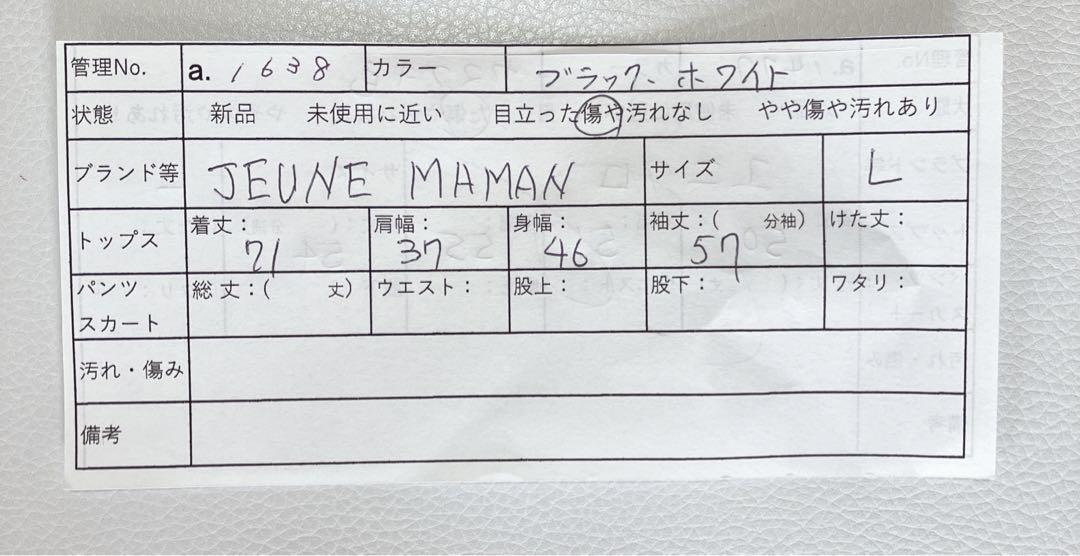 管理No. a. 1638 カラー ブラック、ホワイト
状態 新品 未使用に近い 目立った傷や汚れなし やや傷や汚れあり
ブランド等 JEUNE MAMAN サイズ L
トップス 着丈: 71 肩幅: 37 身幅: 46 袖丈:( 分袖) 57 けた丈:
パンツ スカート 総丈:( 丈) ウエスト: 股上: 股下: ワタリ:
汚れ・傷み
備考